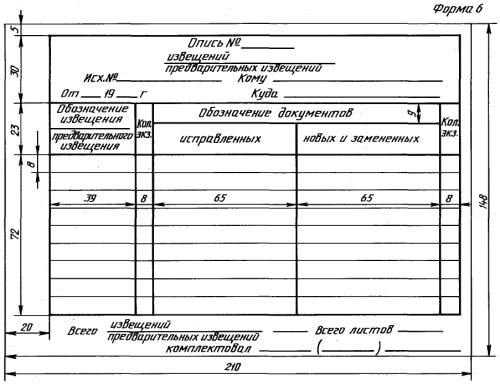 Форма 6
5
Опись №
извещений
предварительных извещений
30
Исх.№ Кому
От 19 г Куда
Обозначение извещения
предварительного извещения
Кол. экз.
Обозначение документов
9
Кол. экз.
23
исправленных
новых и замененных
8
39 8 65 65 8
148
72
20
Всего извещений
предварительных извещений
Всего листов
комплектовал ( )
210